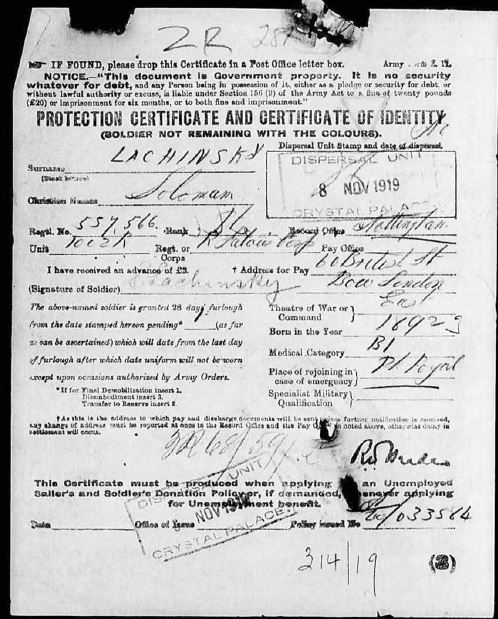 ZR
IF FOUND, please drop this Certificate in a Post Office letter box. Army Z. 11.
NOTICE.—"This document is Government property. It is no security
whatever for debt, and any Person being in possession of it, either as a pledge or security for debt, or
without lawful authority or excuse, is liable under Section 156 (9) of the Army Act to a fine of twenty pounds
(£20) or imprisonment for six months, or to both fine and imprisonment."
PROTECTION CERTIFICATE AND CERTIFICATE OF IDENTITY
(SOLDIER NOT REMAINING WITH THE COLOURS).
Dispersal Unit Stamp and date of dispersal.
DISPERSAL UNIT
8 NOV 1919
CRYSTAL PALACE
Surname LACHINSKY
(Block letters)
Christian Names Solomam
Regtl. No. 537,566 Rank Record Office
Unit Regt. or Corps Pay Office
I have received an advance of £2. † Address for Pay St
(Signature of Soldier) Lachinsky Bow London
East
The above-named soldier is granted 28 days' furlough
from the date stamped hereon pending* (as far
as can be ascertained) which will date from the last day
of furlough after which date uniform will not be worn
except upon occasions authorized by Army Orders.
* If for Final Demobilization insert 1.
Disembodiment insert 2.
Transfer to Reserve insert 3.
Theatre of War or Command
Born in the Year 1892
Medical Category B1
Place of rejoining in case of emergency
Specialist Military Qualification
† As this is the address to which pay and discharge documents will be sent unless further notification is received,
any change of address must be reported at once to the Record Office and the Pay Office as noted above, otherwise delay in
settlement will occur.
This Certificate must be produced when applying an Unemployed
Sailor's and Soldier's Donation Policy or, if demanded, whenever applying
for Unemployment benefit.
DISPERSAL UNIT
NOV 1919
CRYSTAL PALACE
Date Office of Issue Policy issued No 033564
314/19
(3)